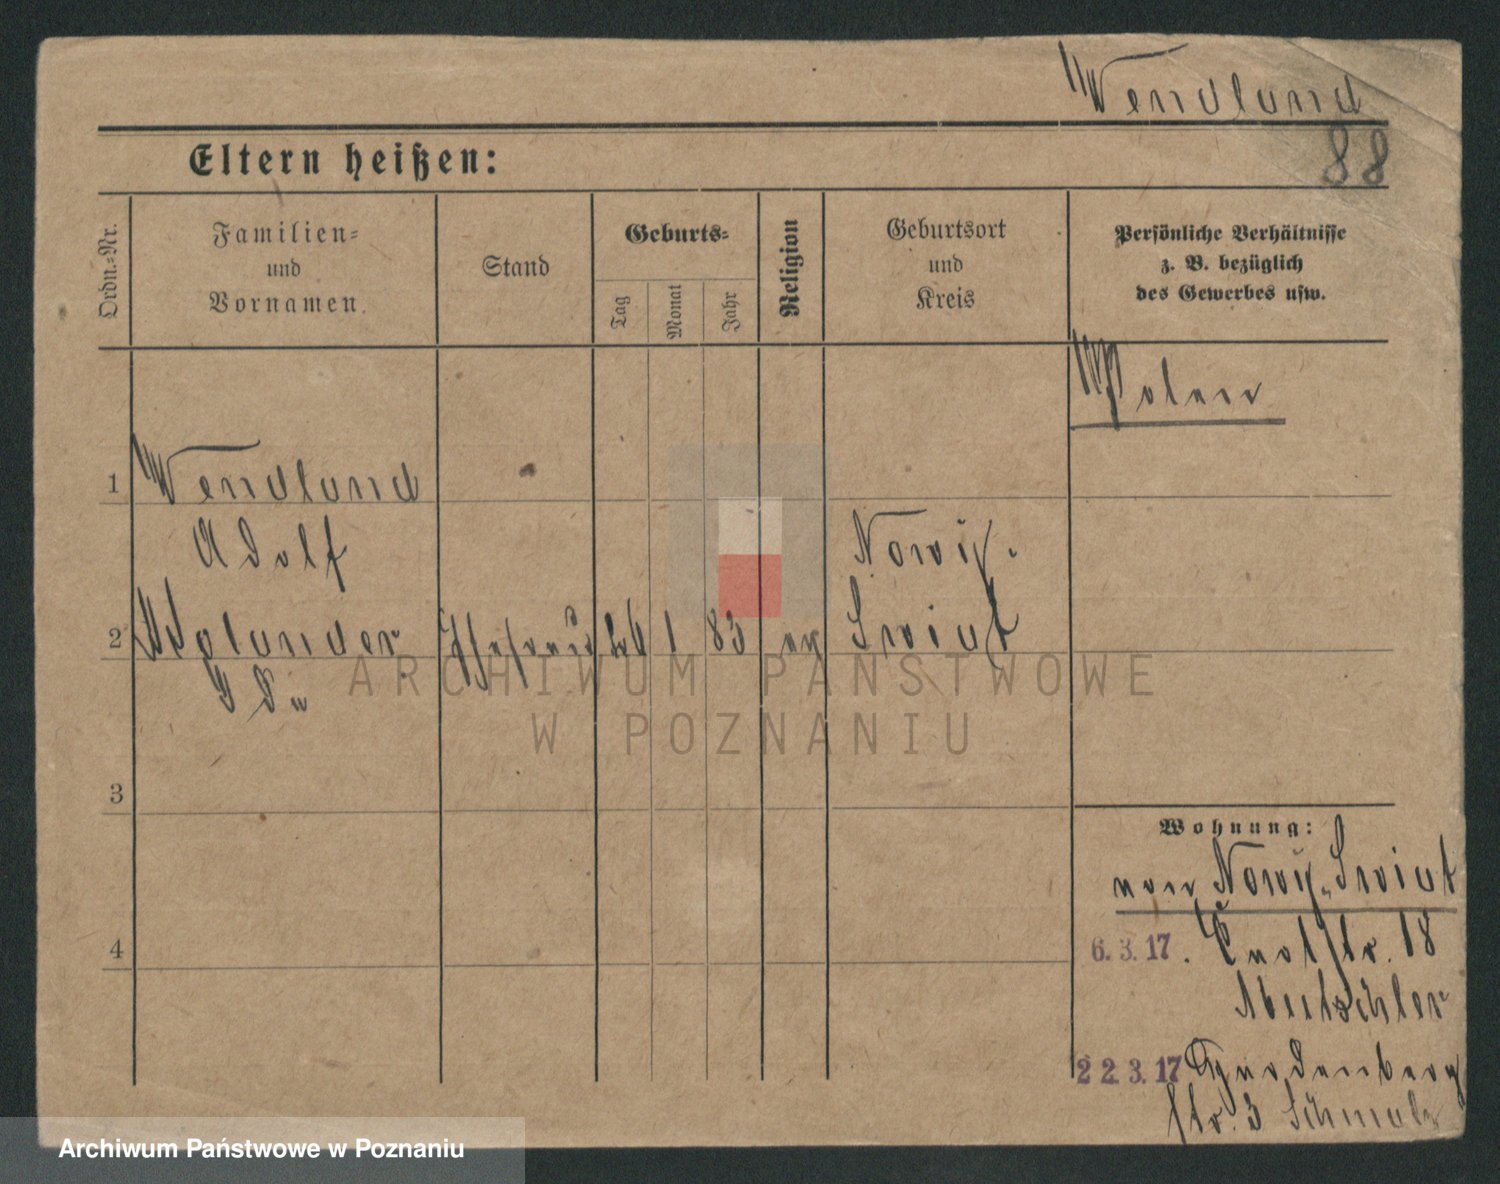 Wendland
88
Eltern heißen:
Ordn.-Nr.
Familien-
und
Vornamen.
Stand
Geburts-
Tag
Monat
Jahr
Religion
Geburtsort
und
Kreis
Persönliche Verhältnisse
z. B. bezüglich
des Gewerbes usw.
Polen
1
Wendland
Adolf
Nowy.
2
Ehefrau
1
83
ev
Swiat
3
Wohnung:
von Nowy-Swiat
4
6. 3. 17. str. 18
22. 3. 17
str. 3
ARCHIWUM PAŃSTWOWE
W POZNANIU
Archiwum Państwowe w Poznaniu